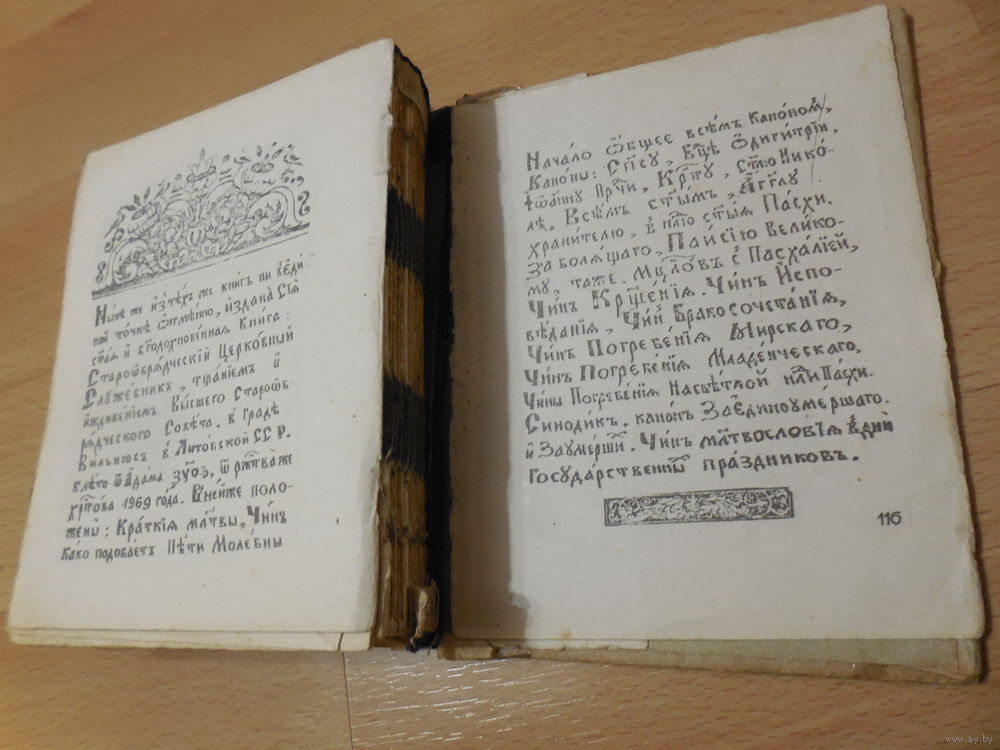 Ны́нѣ же и҆з̾ тѣ́хъ же книгъ ни в̾ є҆ди́-
ной то́чкѣ ѿмѣ́нно, и҆здана̀ сїѧ̀
ст҃а́ѧ и҆ бг҃одохнове́ннаѧ Книга:
Староѡбрѧ́дческїй Церковный
Слꙋже́бникъ, тща́нїемъ и҆
и҆ждиве́нїемъ Вы́сшего Староѡб-
рѧ́дческого Совѣ́та. в̾ гра́дѣ
Ви́льнюсъ в̾ Лито́вской ССР.
в̾лѣто ѿ А҆да́ма ҂зꙋоз, ѿ рж҃тва́же
хр҃то́ва 1969 го́да. В̾не́йже поло-
жены̀: Кра́ткїѧ мл҃твы, Чи́нъ
ка́ко подоба́етъ пѣ́ти Моле́бны
Нача́ло ѻ҆́бщее всѣ́мъ Кано́номъ,
Кано́ны: Сп҃сꙋ, Бц҃ѣ Ѻ҆диги́трїи,
І҆ѡа́ннꙋ Прⷣте́чи, Крⷭ҇тꙋ̀, ст҃о́мꙋ Нико́-
лѣ, Всѣ́мъ ст҃ы́мъ, А҆́гг҃лꙋ
храни́телю, в̾ нлⷣю ст҃ы́ѧ Па́схи.
За болѧ́щаго, Паи́сїю Вели́ко-
мꙋ, та́же. Мцⷭ҇ло́въ с̾ Пасха́лїей,
Чи́нъ Крщ҃е́нїѧ. Чи́нъ И҆спо-
вѣ́данїѧ, Чи́нъ Бракосочета́нїѧ,
Чи́нъ Погребе́нїѧ Мирска́го,
Чи́нъ Погребе́нїѧ Младе́нческаго,
Чины Погребе́нїѧ На свѣ́тлой нлⷣи Па́схи.
Синоди́къ, кано́нъ За є҆ди́ноꙋмершаго.
и҆ За ꙋме́ршїѧ. Чи́нъ мл҃твосло́вїѧ в̾ дни̑
Госꙋда́рственныхъ пра́здниковъ.
116
www.ay.by